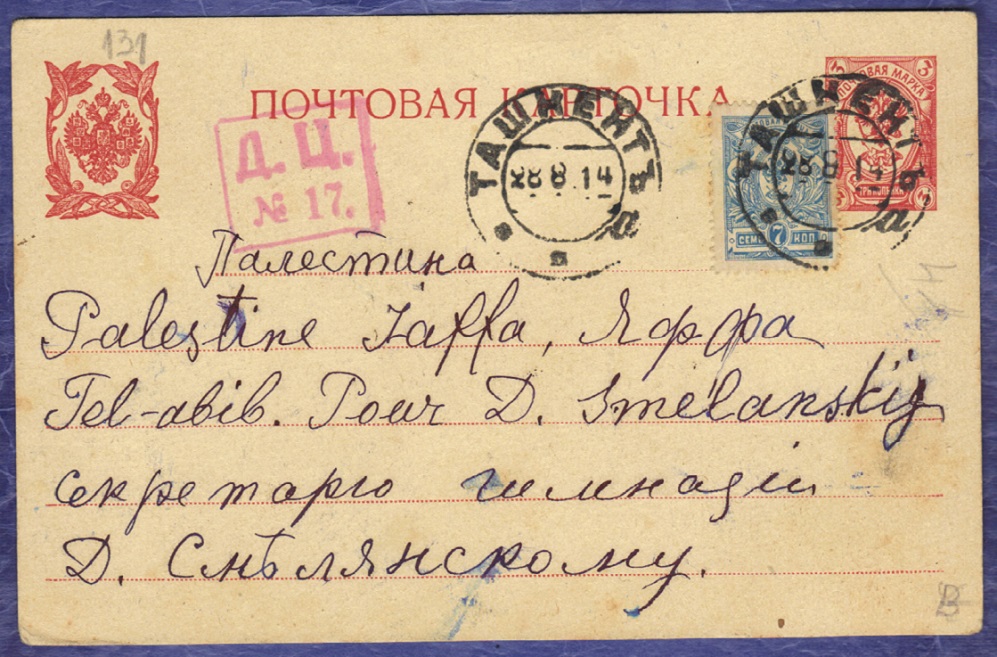 131
ПОЧТОВАЯ КАРТОЧКА
ПОЧТОВАЯ МАРКА
3 3
Д. Ц.
№ 17.
ТАШКЕНТЪ
28 8 14
а
ТАШКЕНТЪ
28 8 14
а
7
СЕМЬ КОП
Палестина
Palestine Iaffa, Яффа
Tel-abib. Pour D. Smelanskij
секретарю гимназіи
Д. Смѣлянскому.
В